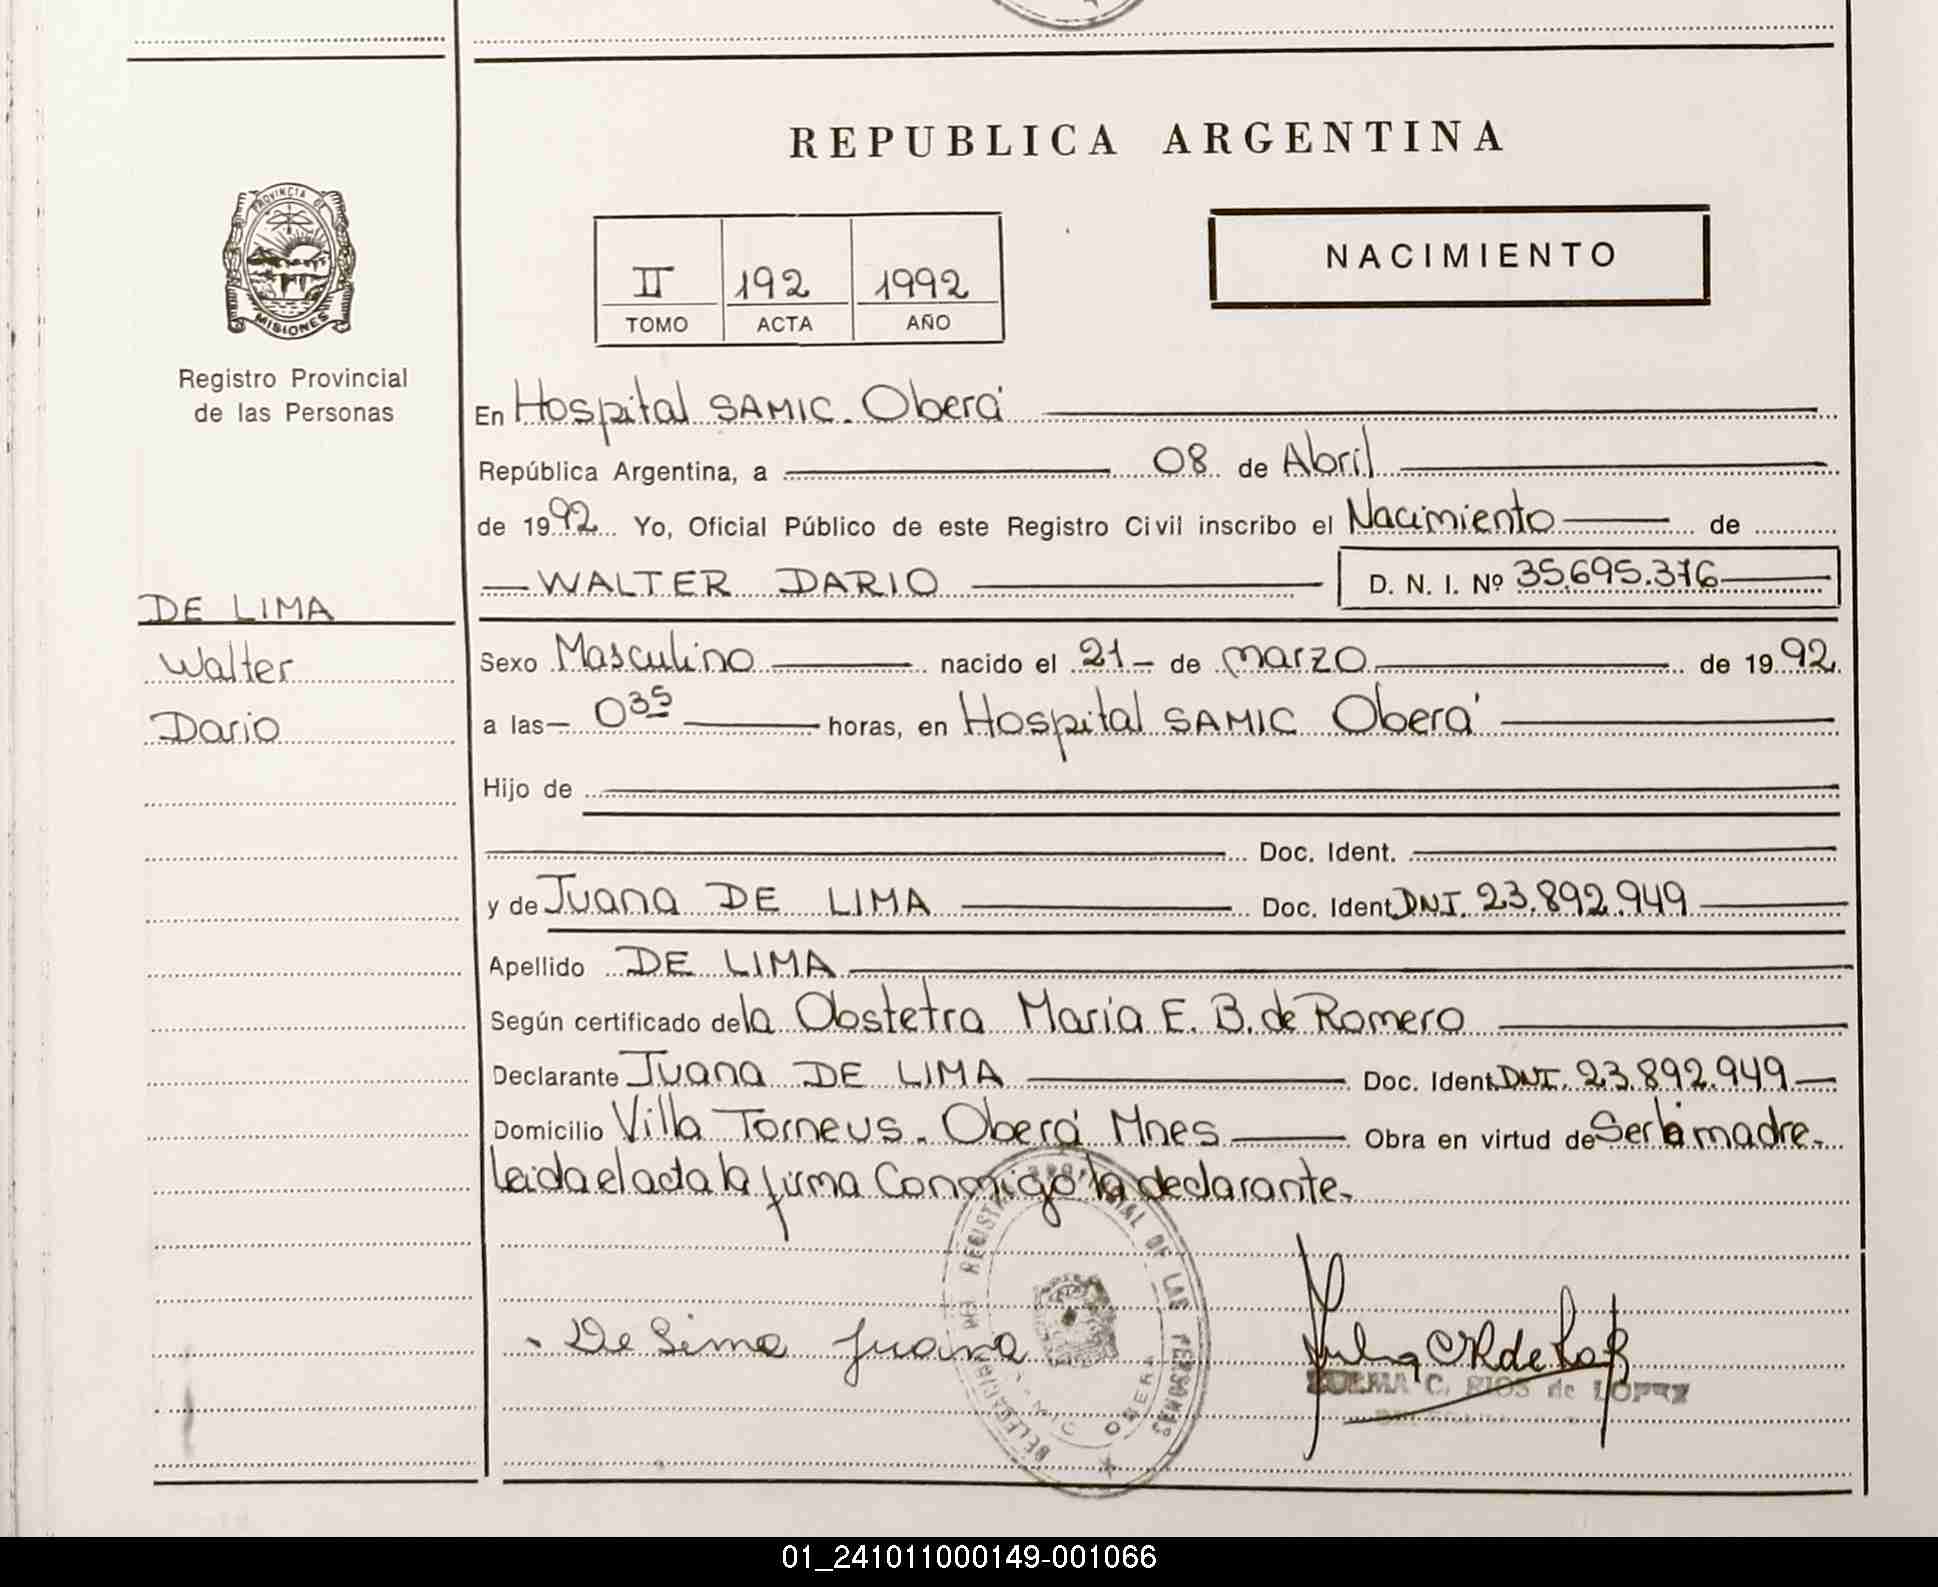 REPUBLICA ARGENTINA
PROVINCIA DE
MISIONES
Registro Provincial
de las Personas
II 192 1992
TOMO ACTA AÑO
NACIMIENTO
En Hospital SAMIC. Oberá
República Argentina, a 08 de Abril
de 1992 Yo, Oficial Público de este Registro Civil inscribo el Nacimiento de
WALTER DARIO D. N. I. Nº 35.695.376
DE LIMA
Walter
Dario
Sexo Masculino nacido el 21 de marzo de 1992
a las 035 horas, en Hospital SAMIC Oberá
Hijo de
Doc. Ident.
y de Juana DE LIMA Doc. Ident DNI. 23.892.949
Apellido DE LIMA
Según certificado de la Obstetra Maria E. B. de Romero
Declarante Juana DE LIMA Doc. Ident DNI. 23.892.949
Domicilio Villa Torneus. Oberá Mnes Obra en virtud de Ser la madre.
Leida el acta la firma Conmigo la declarante.
De Lima Juana
DELEGACION DEL REGISTRO PROVINCIAL DE LAS PERSONAS
OBERA
ZULMA C. RIOS de LOPEZ
01_241011000149-001066